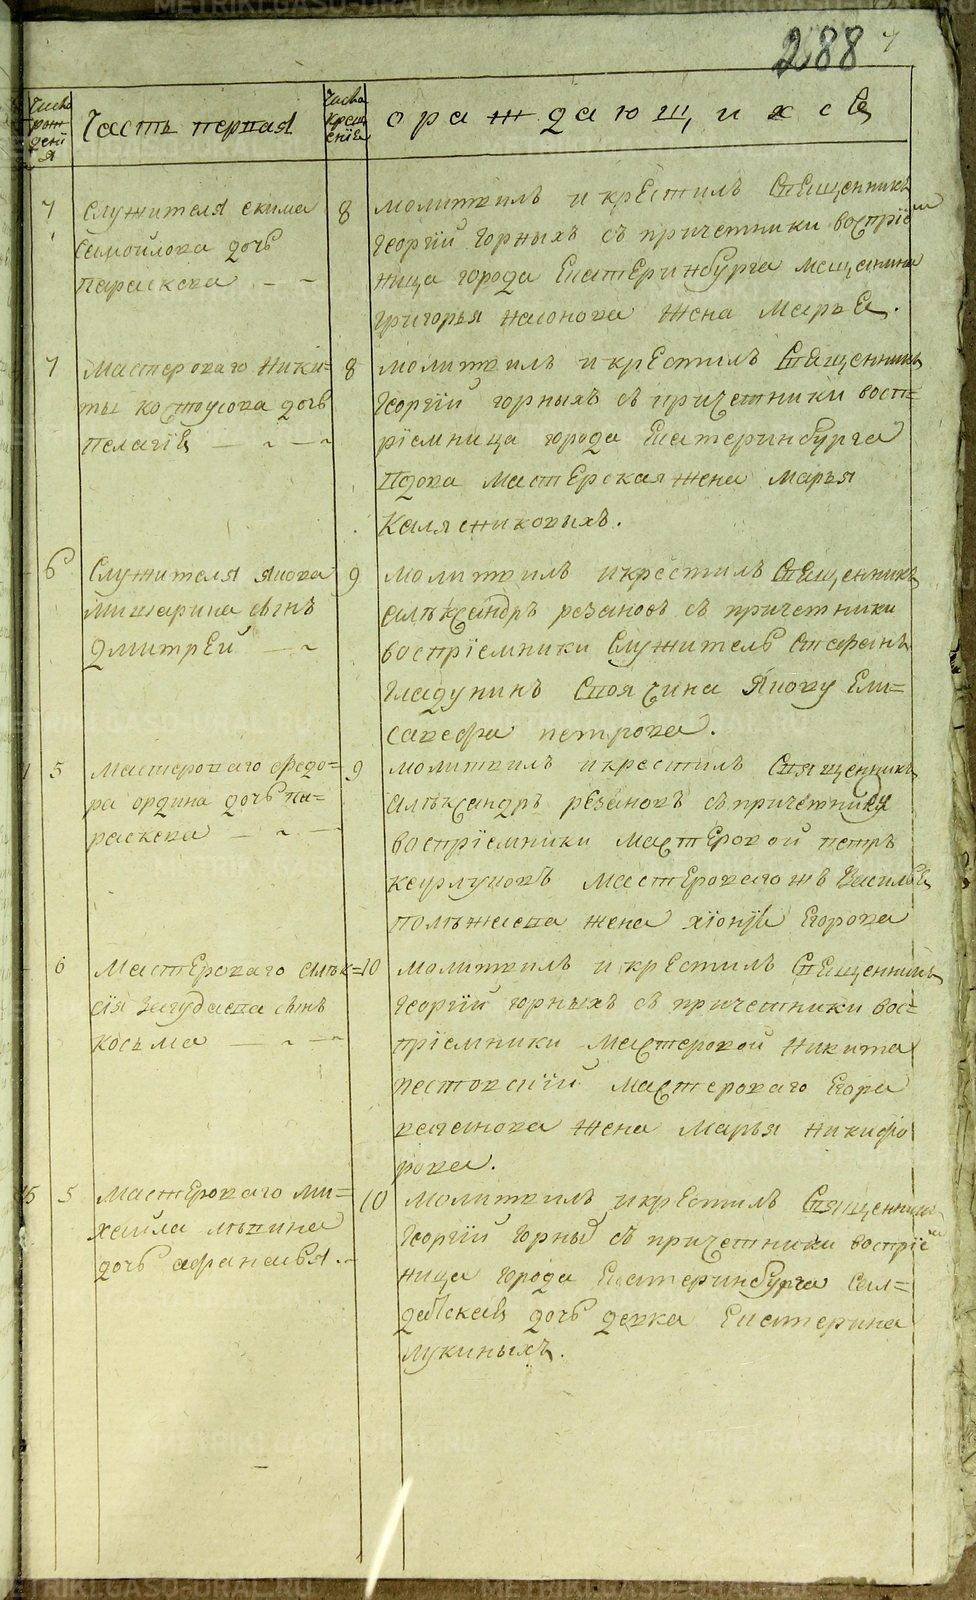 288
Число рождения
Часть первая
Число крещения
о раждающихся
7
Служителя екима
Самойлова дочь
параскева
8
молитвилъ и крестилъ Священникъ
Георгий Горныхъ съ причетники воспрїем
ница города Екатеринбурга мещанина
Григорья жена Марья.
7
Мастероваго Ники=
ты костоусова дочь
пелагїя
8
молитвилъ и крестилъ Священникъ
Георгий горныхъ съ причетники восп=
рїемница города Екатеринбурга
вдова мастерская жена марья
Калясниковыхъ.
6
Служителя якова
Мишарина сынъ
Дмитрей
9
молитвилъ и крестилъ Священникъ
алѣксандръ резановъ съ причетники
воспрїемники Служитель Стефанъ
Гладунинъ Ели=
савефа петрова.
5
Мастероваго федо=
ра ордина дочь па=
раскева
9
молитвилъ и крестилъ Священникъ
алѣксандръ резановъ съ причетники
воспрїемники мастеровой петръ
мастероваго жъ Василья
жена хїонїя Егорова
6
Мастероваго алѣк=
сїя сынъ
косьма
10
молитвилъ и крестилъ Священникъ
Георгий горныхъ съ причетники вос=
прїемники мастеровой никита
мастероваго Егора
жена марья никифо
рова.
5
Мастероваго ми=
хайла дочь афанасья
10
молитвилъ и крестилъ Священникъ
Георгий Горных съ причетники воспрїем
ница города Екатеринбурга сал=
датская дочь девка Екатерина
лукиныхъ.
METRIKI.GASO-URAL.RU